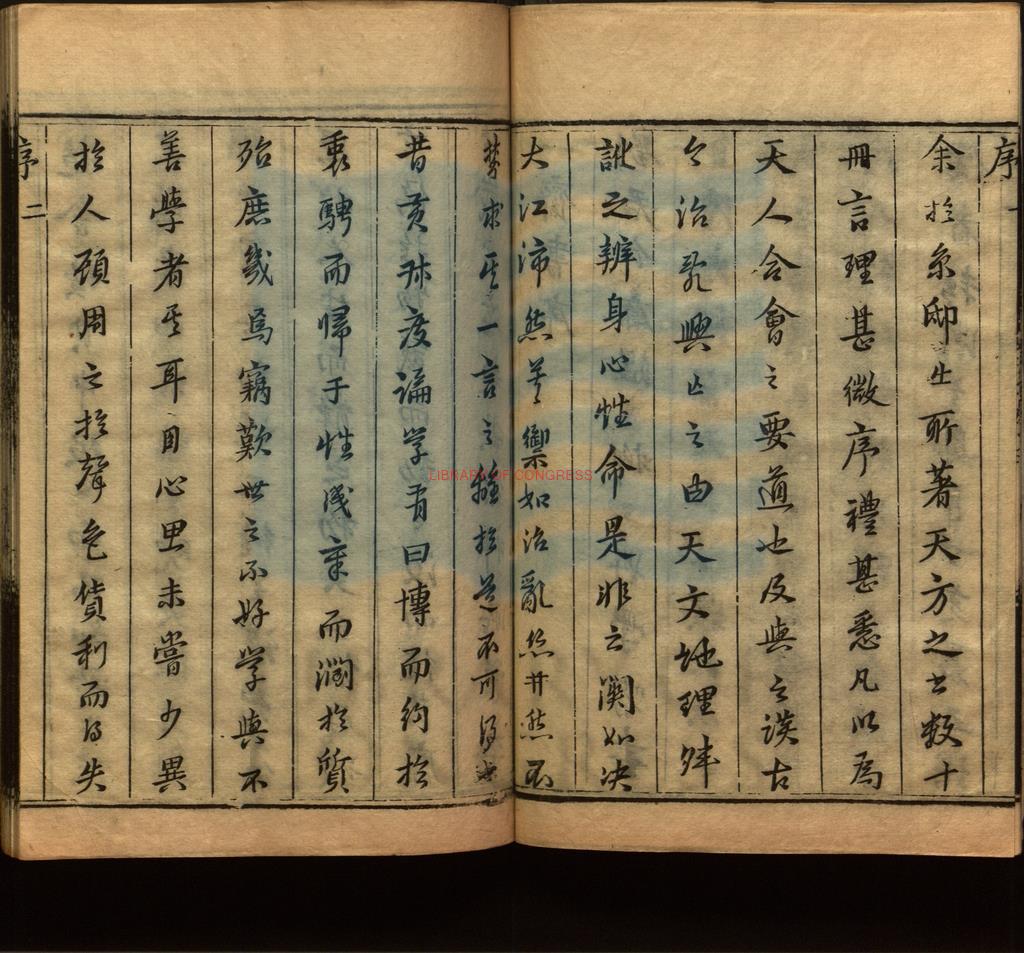 序 一
余於京邸生所著天方之書數十
冊言理甚微序禮甚悉凡以為
天人合會之要道也及與之談古
今治乱興亡之由天文地理殊
訛之辨身心性命是非之關如決
大江沛然莫禦如治亂絲井然不
棼求其一言之離於道不可得也
昔黃叔度論学有曰博而約於
衷騁而歸于性而潤於質
殆庶幾焉竊歎世之不好学與不
善學者其耳目心思未嘗少異
於人顧用之於聲色貨利而得失
序 二
LIBRARY OF CONGRESS